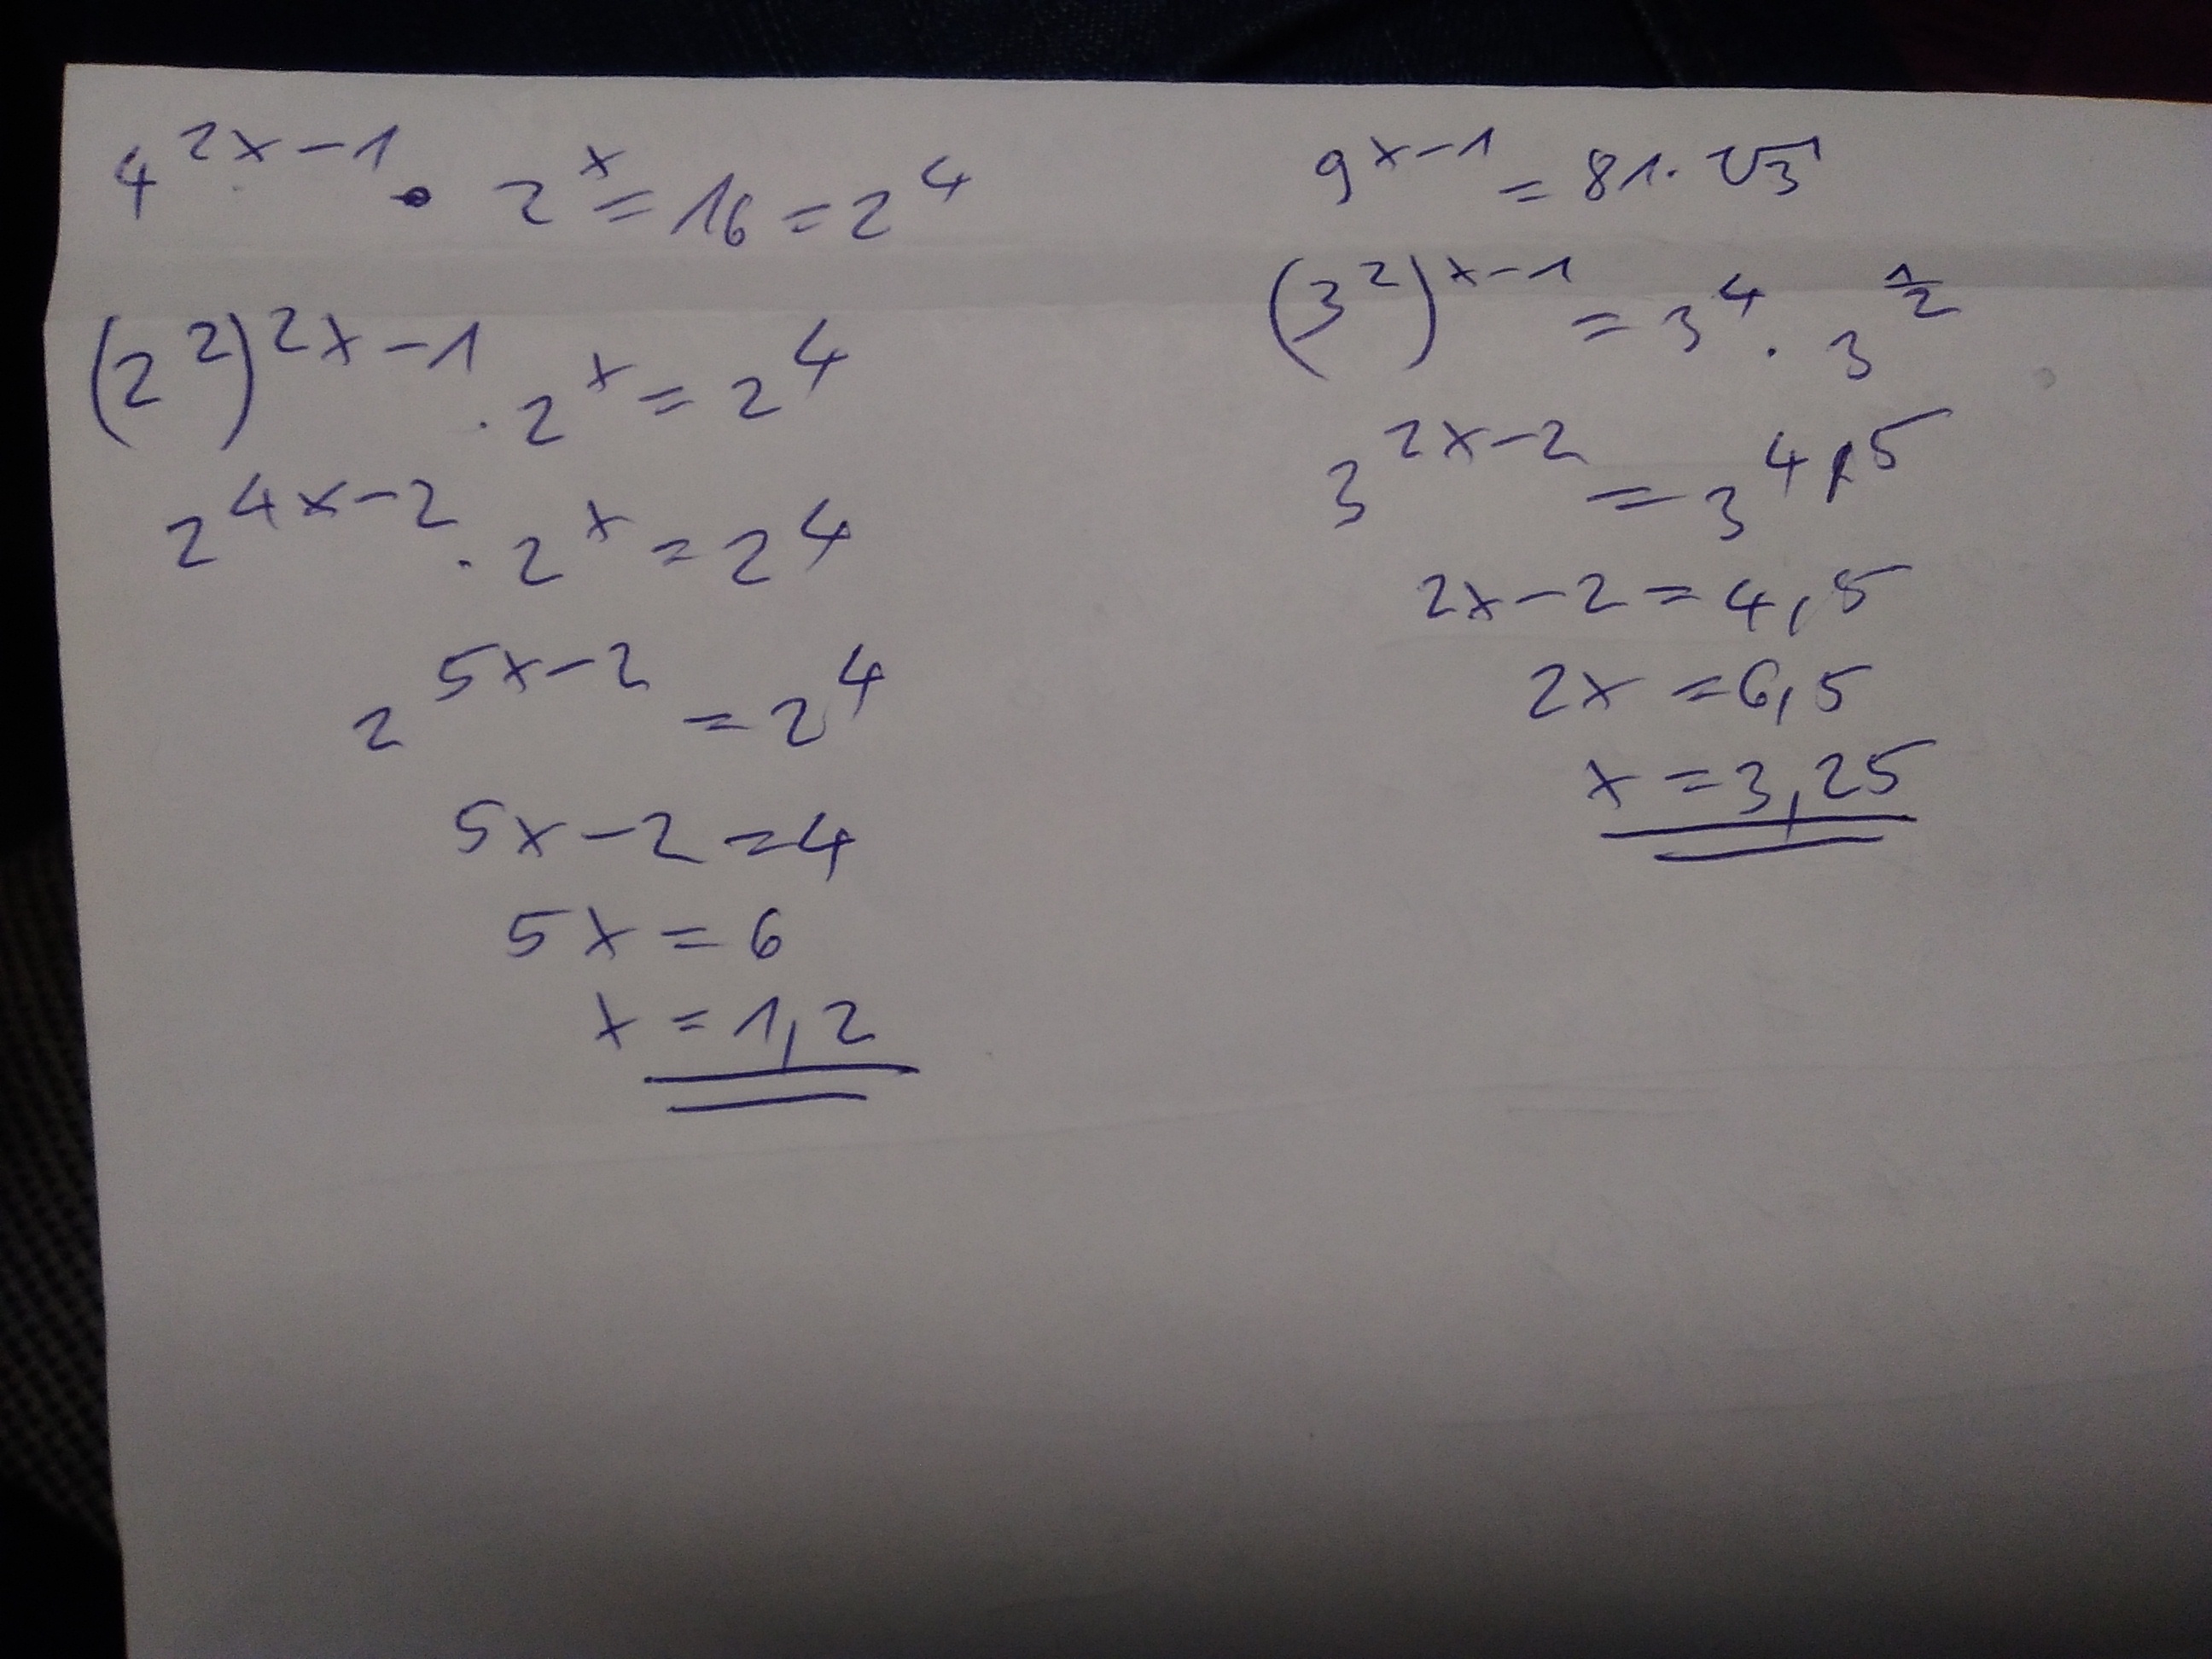 4^{2x-1} • 2^x = 16 = 2^4
(2^2)^{2x-1} · 2^x = 2^4
2^{4x-2} · 2^x = 2^4
2^{5x-2} = 2^4
5x-2=4
5x = 6
x = 1,2
9^{x-1} = 81 · √3
(3^2)^{x-1} = 3^4 · 3^{1/2}
3^{2x-2} = 3^{4,5}
2x-2=4,5
2x =6,5
x =3,25